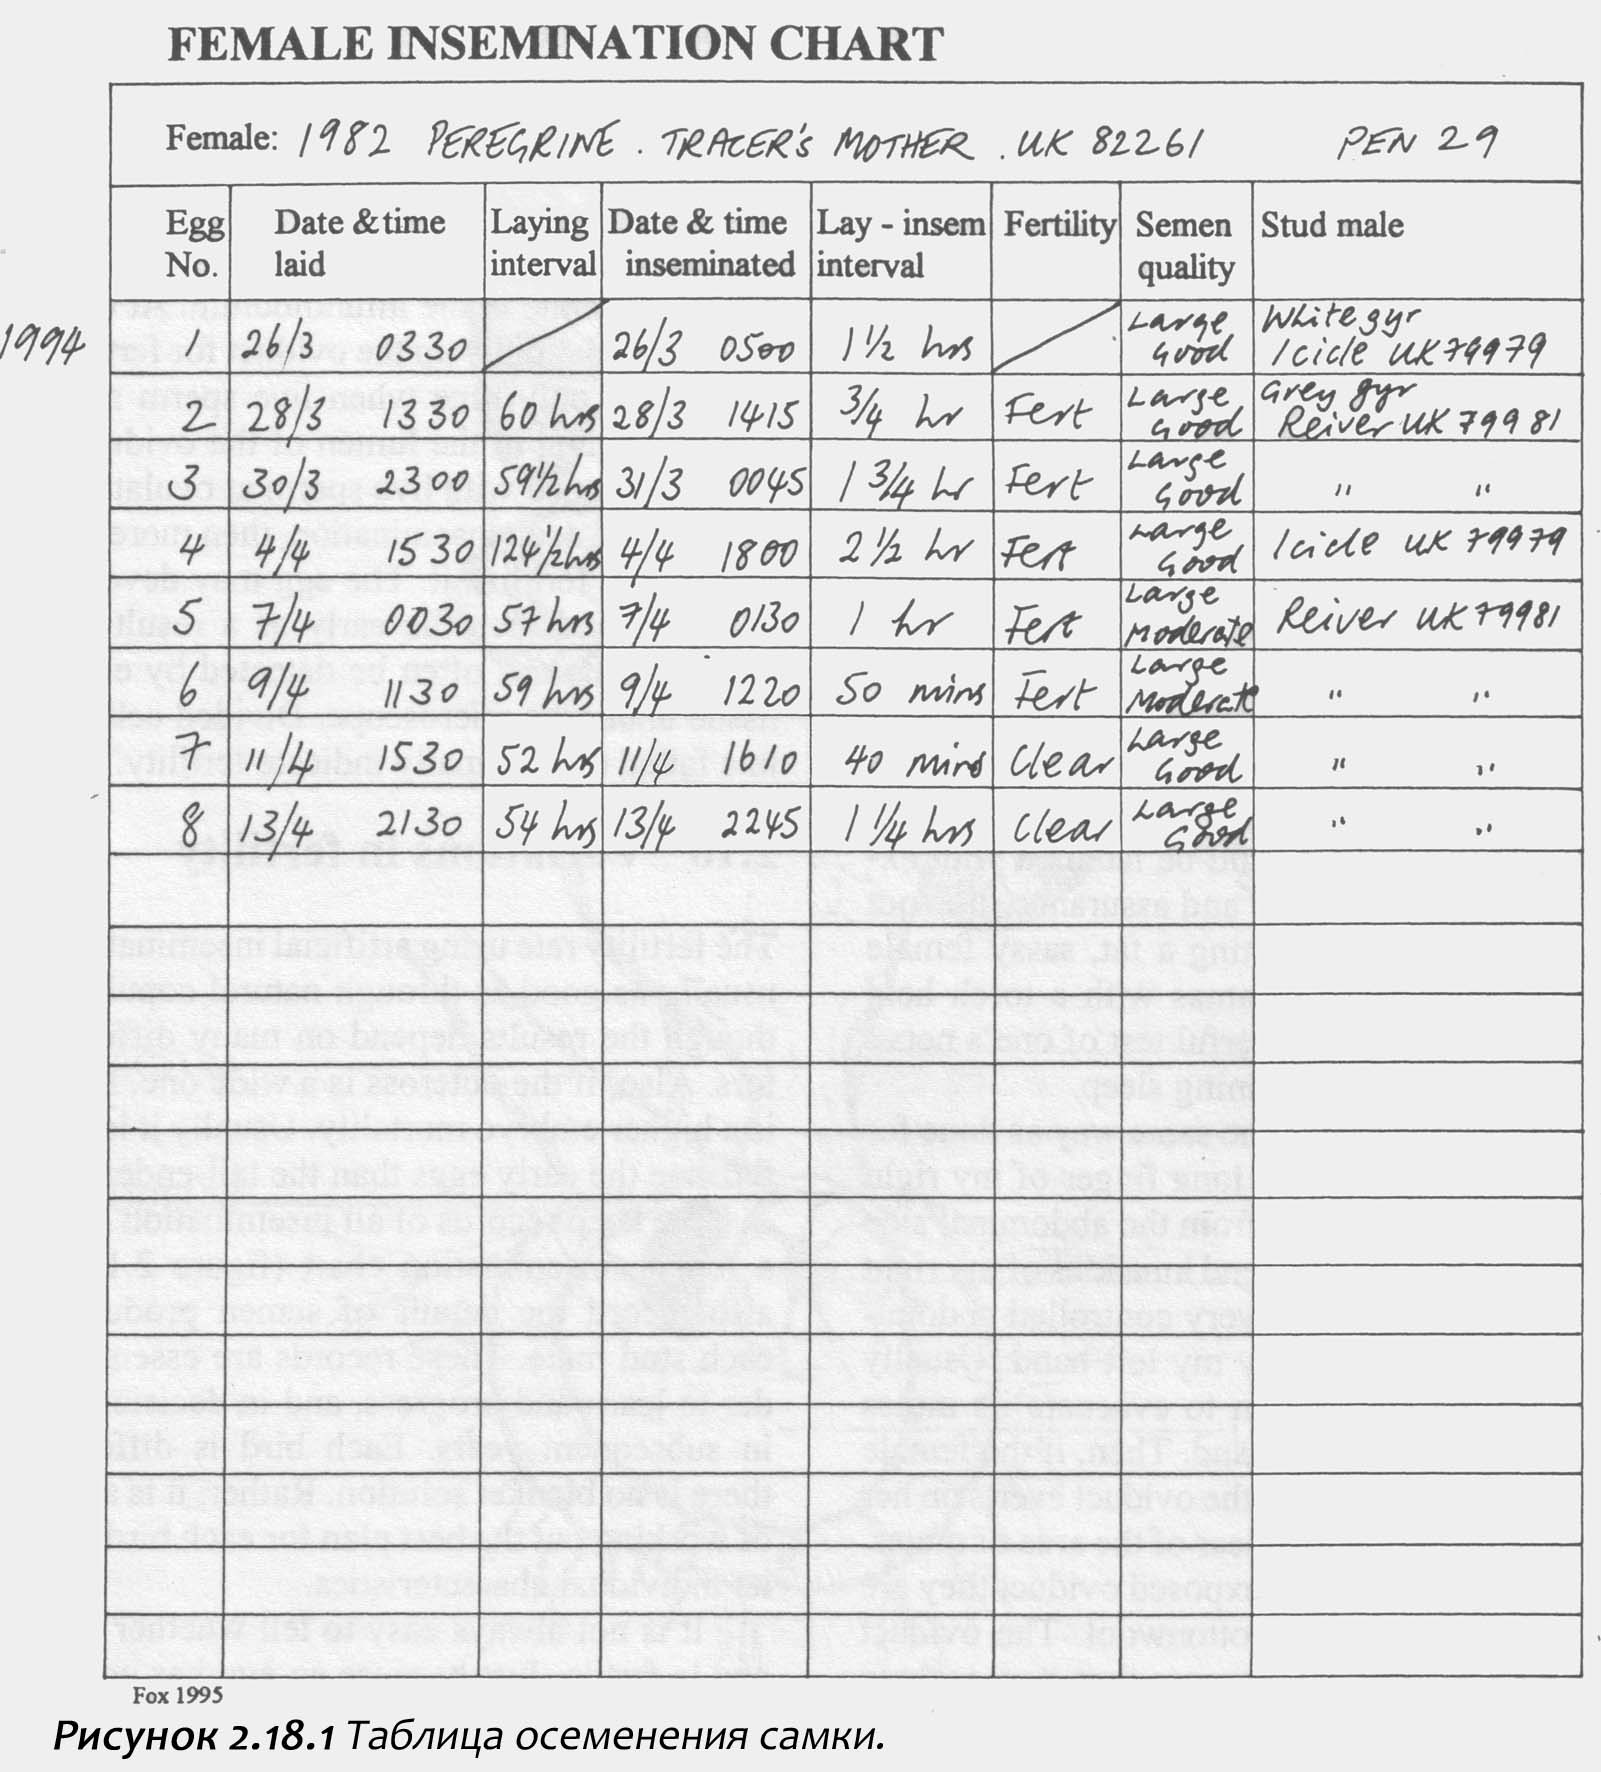 FEMALE INSEMINATION CHART
Female: 1982 PEREGRINE . TRACER'S MOTHER . UK 82261 PEN 29
Egg No. Date & time laid Laying interval Date & time inseminated Lay - insem interval Fertility Semen quality Stud male
1994 1 26/3 0330 26/3 0500 1 1/2 hrs Large Good White gyr Icicle UK 79979
2 28/3 1330 60 hrs 28/3 1415 3/4 hr Fert Large Good Grey gyr Reiver UK 79981
3 30/3 2300 59 1/2 hrs 31/3 0045 1 3/4 hr Fert Large Good " "
4 4/4 1530 124 1/2 hrs 4/4 1800 2 1/2 hr Fert Large Good Icicle UK 79979
5 7/4 0030 57 hrs 7/4 0130 1 hr Fert Large Moderate Reiver UK 79981
6 9/4 1130 59 hrs 9/4 1220 50 mins Fert Large Moderate " "
7 11/4 1530 52 hrs 11/4 1610 40 mins Clear Large Good " "
8 13/4 2130 54 hrs 13/4 2245 1 1/4 hrs Clear Large Good " "
Fox 1995
Рисунок 2.18.1 Таблица осеменения самки.